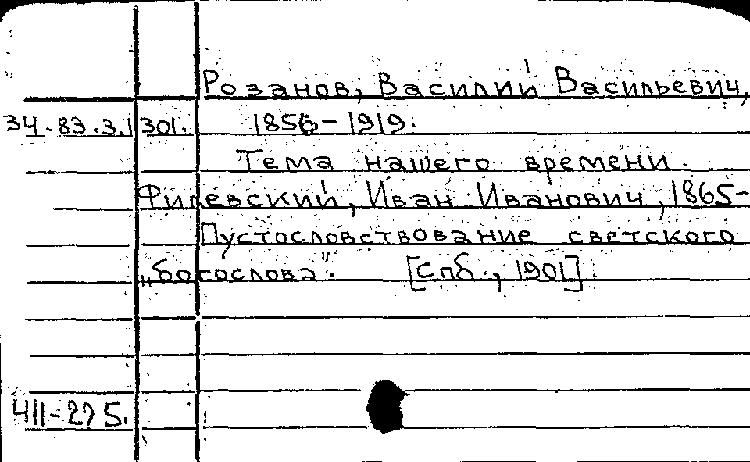 Розанов, Василий Васильевич,
34.83.3.1 301. 1856-1919.
Тема нашего времени.
Филевский, Иван Иванович, 1865-
Пустословствование светского
„богослова". [Спб., 1901].
411-275.